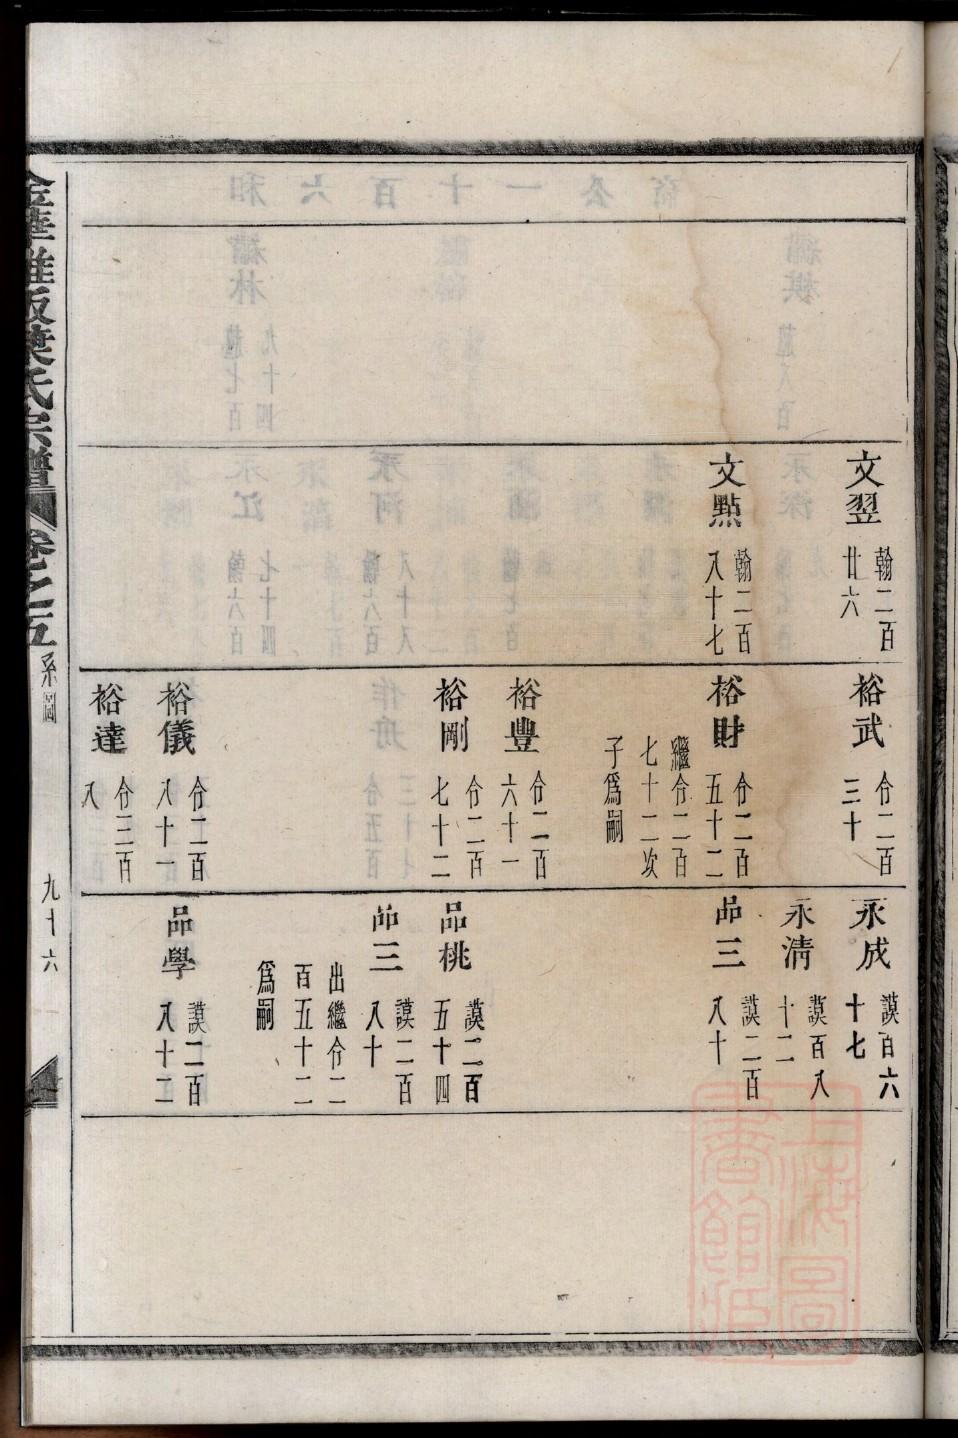 文翌
翰二百
廿六
文點
翰二百
八十七
裕武
仝二百
三十
裕財
仝二百
五十二
繼仝二百
七十二次
子爲嗣
裕豐
仝二百
六十一
裕剛
仝二百
七十二
裕儀
仝二百
八十一
裕達
仝三百
八
永成
謨百六
十七
永淸
謨百八
十二
品三
謨二百
八十
品桃
謨二百
五十四
品三
謨二百
八十
出繼仝二
百五十二
爲嗣
品學
謨二百
八十二
葉氏宗譜
卷之五
系圖
九十六
上海圖
書館藏